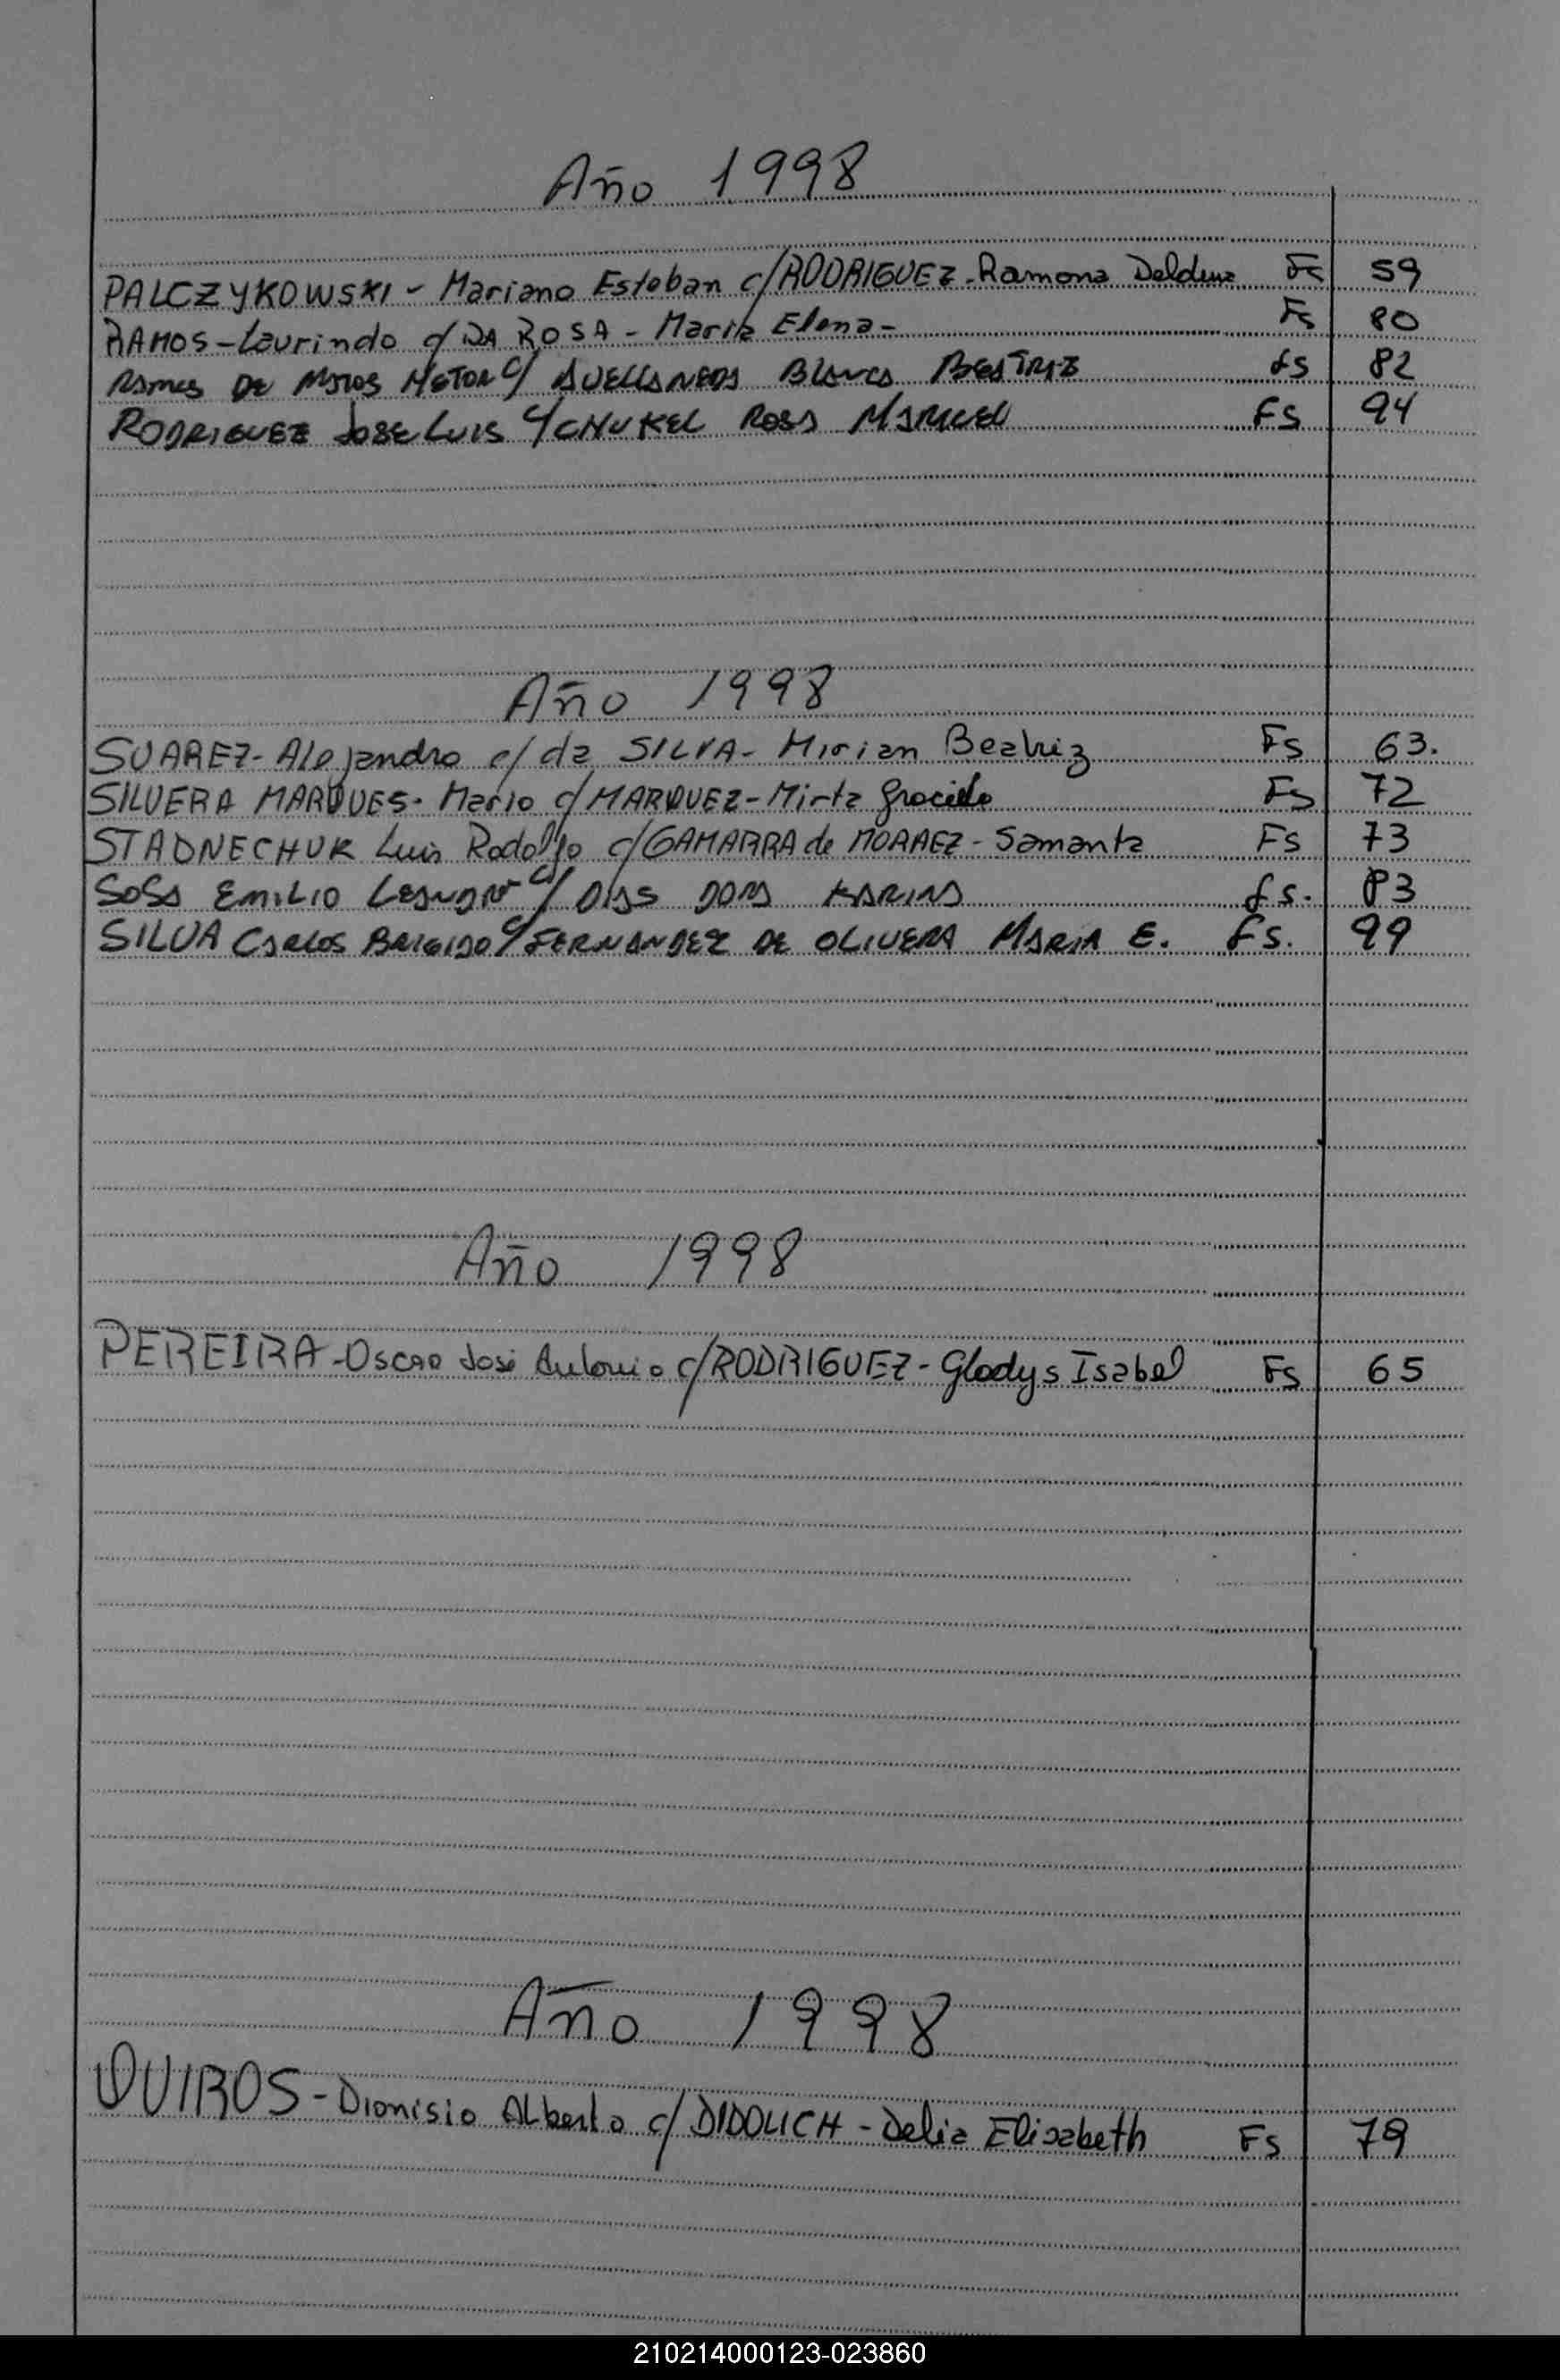 Año 1998
PALCZYKOWSKI - Mariano Esteban c/ RODRIGUEZ - Ramona Fs 59
RAMOS - Laurindo c/ DA ROSA - Maria Elena - Fs 80
RAMOS DE MATOS HECTOR c/ AVELLANEDA BLANCA BEATRIZ fs 82
RODRIGUEZ JOSE LUIS c/ CNUKEL ROSA MARICEL FS 94
Año 1998
SUAREZ - Alejandro c/ da SILVA - Mirian Beatriz Fs 63.
SILVERA MARQUES - Mario c/ MARQUEZ - Mirta Graciela Fs 72
STADNECHUK Luis Rodolfo c/ GAMARRA de MORAEZ - Samanta Fs 73
SOSA EMILIO LEANDRO c/ DIAS DORA KARINA fs. 83
SILVA CARLOS BRIGIDO c/ FERNANDEZ DE OLIVERA MARIA E. fs. 99
Año 1998
PEREIRA - Oscar José Antonio c/ RODRIGUEZ - Gladys Isabel Fs 65
Año 1998
QUIROS - Dionisio Alberto c/ DIDOLICH - Delia Elisabeth Fs 79
210214000123-023860